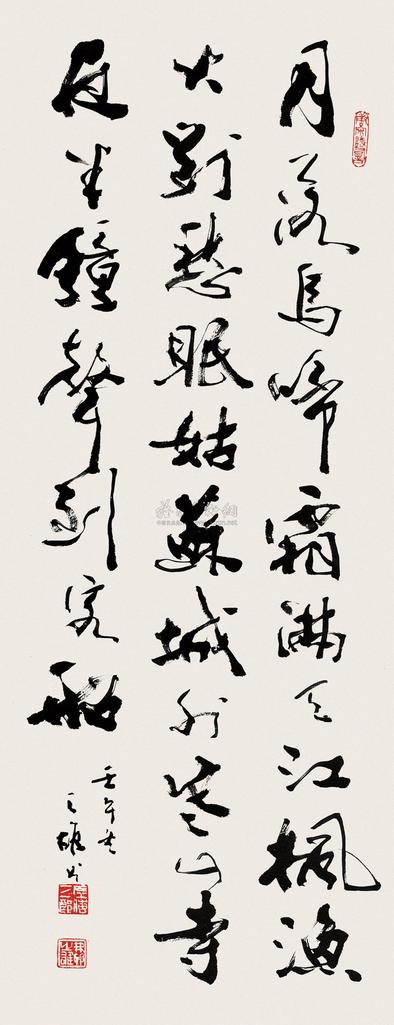 月落烏啼霜滿天江楓漁
火對愁眠姑蘇城外寒山寺
夜半鐘聲到客船
壬午冬
之雄书